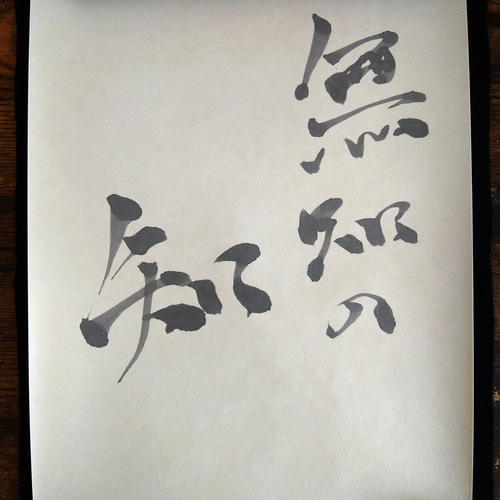 無知の
知